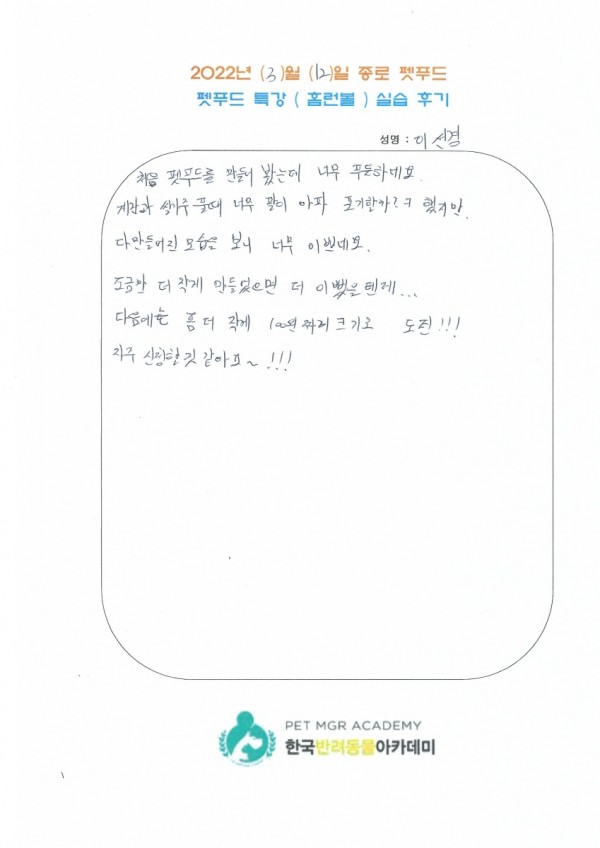 2022년 (3)월 (12)일 종로 펫푸드
펫푸드 특강 ( 홈런볼 ) 실습 후기
성명 : 이선결
처음 펫푸드를 만들어 봤는데 너무 뿌듯하네요.
계란과 쌀가루 풀때 너무 팔이 아파 포기할까? 했지만
다만들어진 모습을 보니 너무 이쁘네요.
조금만 더 작게 만들었으면 더 이뻤을텐데...
다음에는 좀 더 작게 100원 짜리 크기로 도전!!!
자주 신청할것 같아요~!!!
PET MGR ACADEMY
한국반려동물아카데미